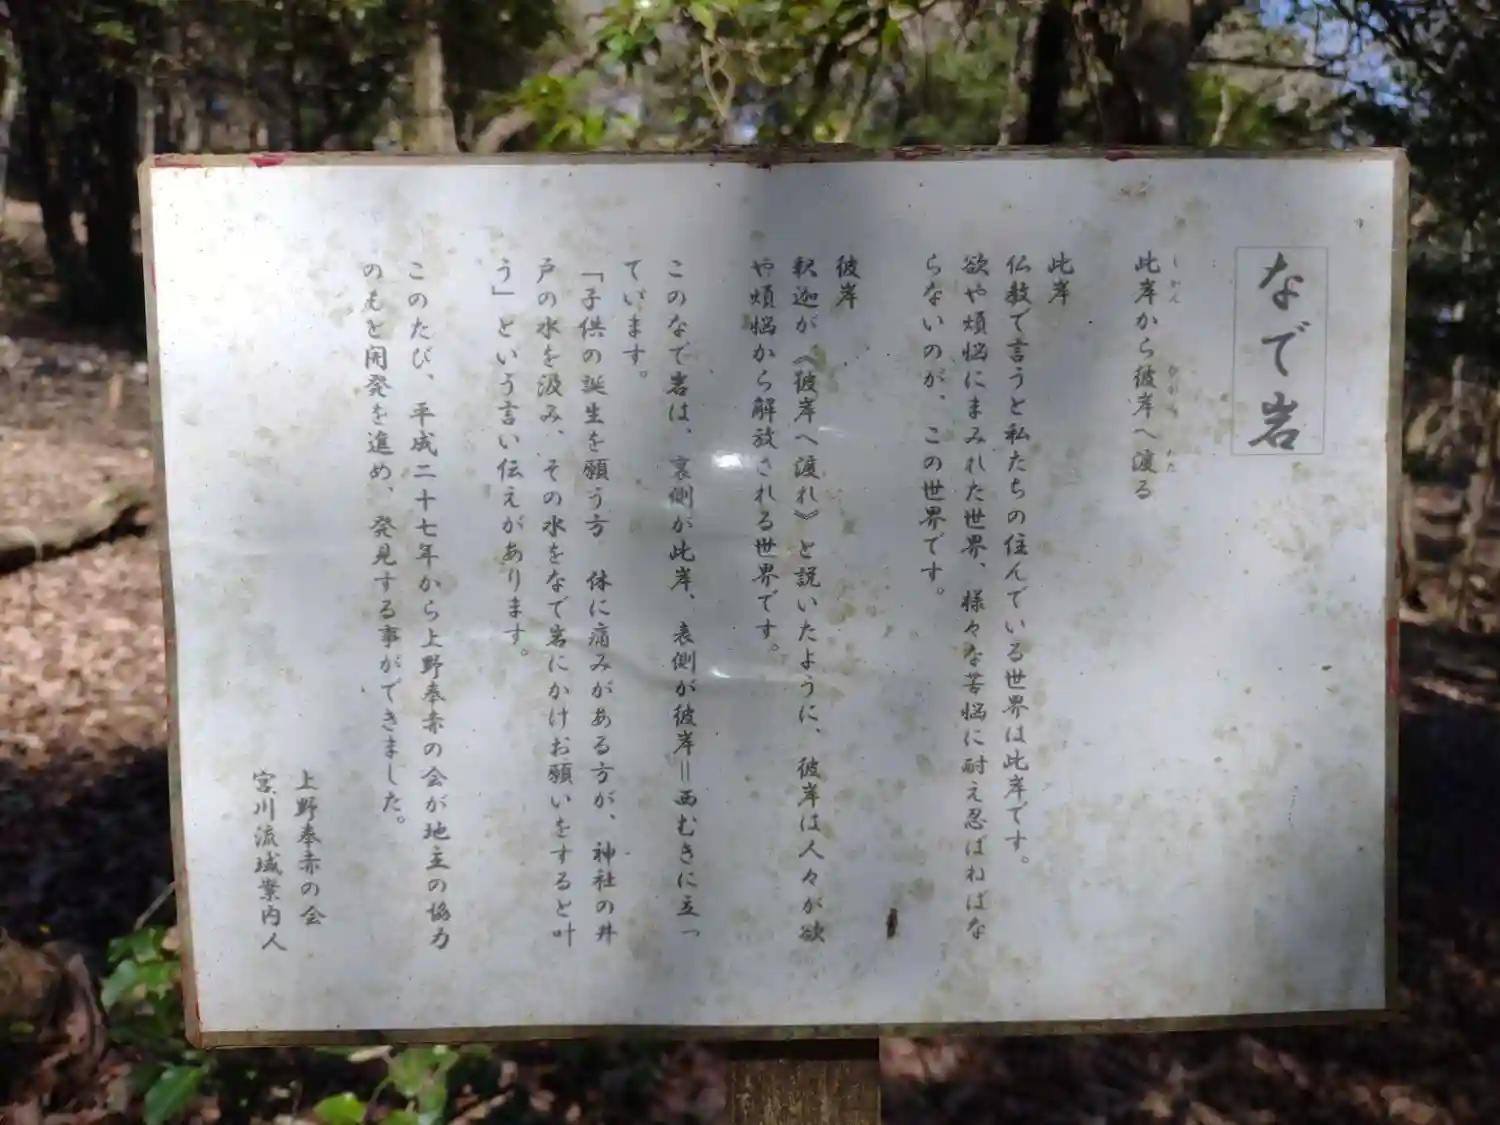 なで岩
此岸から彼岸へ渡る
此岸
仏教で言うと私たちの住んでいる世界は此岸です。
欲や煩悩にまみれた世界、様々な苦悩に耐え忍ばねばな
らないのが、この世界です。
彼岸
釈迦が《彼岸へ渡れ》と説いたように、彼岸は人々が欲
や煩悩から解放される世界です。
このなで岩は、裏側が此岸、表側が彼岸＝西むきに立っ
ています。
「子供の誕生を願う方　体に痛みがある方が、神社の井
戸の水を汲み、その水をなで岩にかけお願いをすると叶
う」という言い伝えがあります。
このたび、平成二十七年から上野奉赤の会が地主の協力
のもと開発を進め、発見する事ができました。
上野奉赤の会
宮川流域案内人